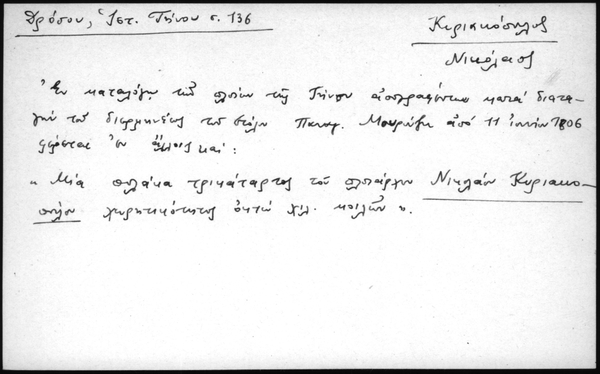 Δρόσου, Ἱστ. Τήνου σ. 136
Κυριακόπουλος
Νικόλαος
Ἐν καταλόγῳ τῶν πλοίων τῆς Τήνου ἀπογραφέντων κατά διατα-
γήν τοῦ διερμηνέως τοῦ στόλου Παναγ. Μουρούζη ἀπό 11 Ἰουνίου 1806
φέρεται ἐν ἄλλοις καί:
« Μία πολάκα τρικάταρτος τοῦ πλοιάρχου Νικολάου Κυριακο-
πούλου χωρητικότητος ὀκτώ χιλ. κοιλῶν ».